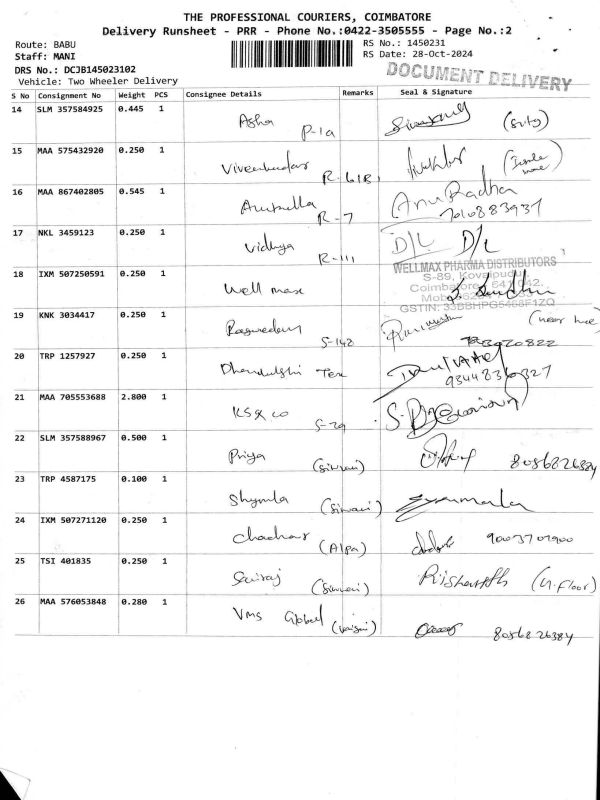 THE PROFESSIONAL COURIERS, COIMBATORE
Delivery Runsheet - PRR - Phone No.:0422-3505555 - Page No.:2
Route: BABU
RS No.: 1450231
Staff: MANI
RS Date: 28-Oct-2024
DRS No.: DCJB145023102
DOCUMENT DELIVERY
Vehicle: Two Wheeler Delivery
S No Consignment No Weight PCS Consignee Details Remarks Seal & Signature
14 SLM 357584925 0.445 1 Asha P-1a
15 MAA 575432920 0.250 1 R-61B
16 MAA 867402805 0.545 1 R-7 Anuradha
7010883937
17 NKL 3459123 0.250 1 Vidhya R-111 D/L D/L
WELLMAX PHARMA DISTRIBUTORS
18 IXM 507250591 0.250 1 Well max S-89, Kovaipudur
Coimbatore 641 042.
GSTIN: 33BBHPG5468F1ZQ
19 KNK 3034417 0.250 1 S-142
20 TRP 1257927 0.250 1 Tex
9344836327
21 MAA 705553688 2.800 1 KS & co S-29
22 SLM 357588967 0.500 1 Priya (Siruvani) 8056826384
23 TRP 4587175 0.100 1 Shymla (Siruvani)
24 IXM 507271120 0.250 1 (Alpa) 9003701900
25 TSI 401835 0.250 1 Sairaj (Siruvani) (G.Floor)
26 MAA 576053848 0.280 1 Vms Global 8056826384